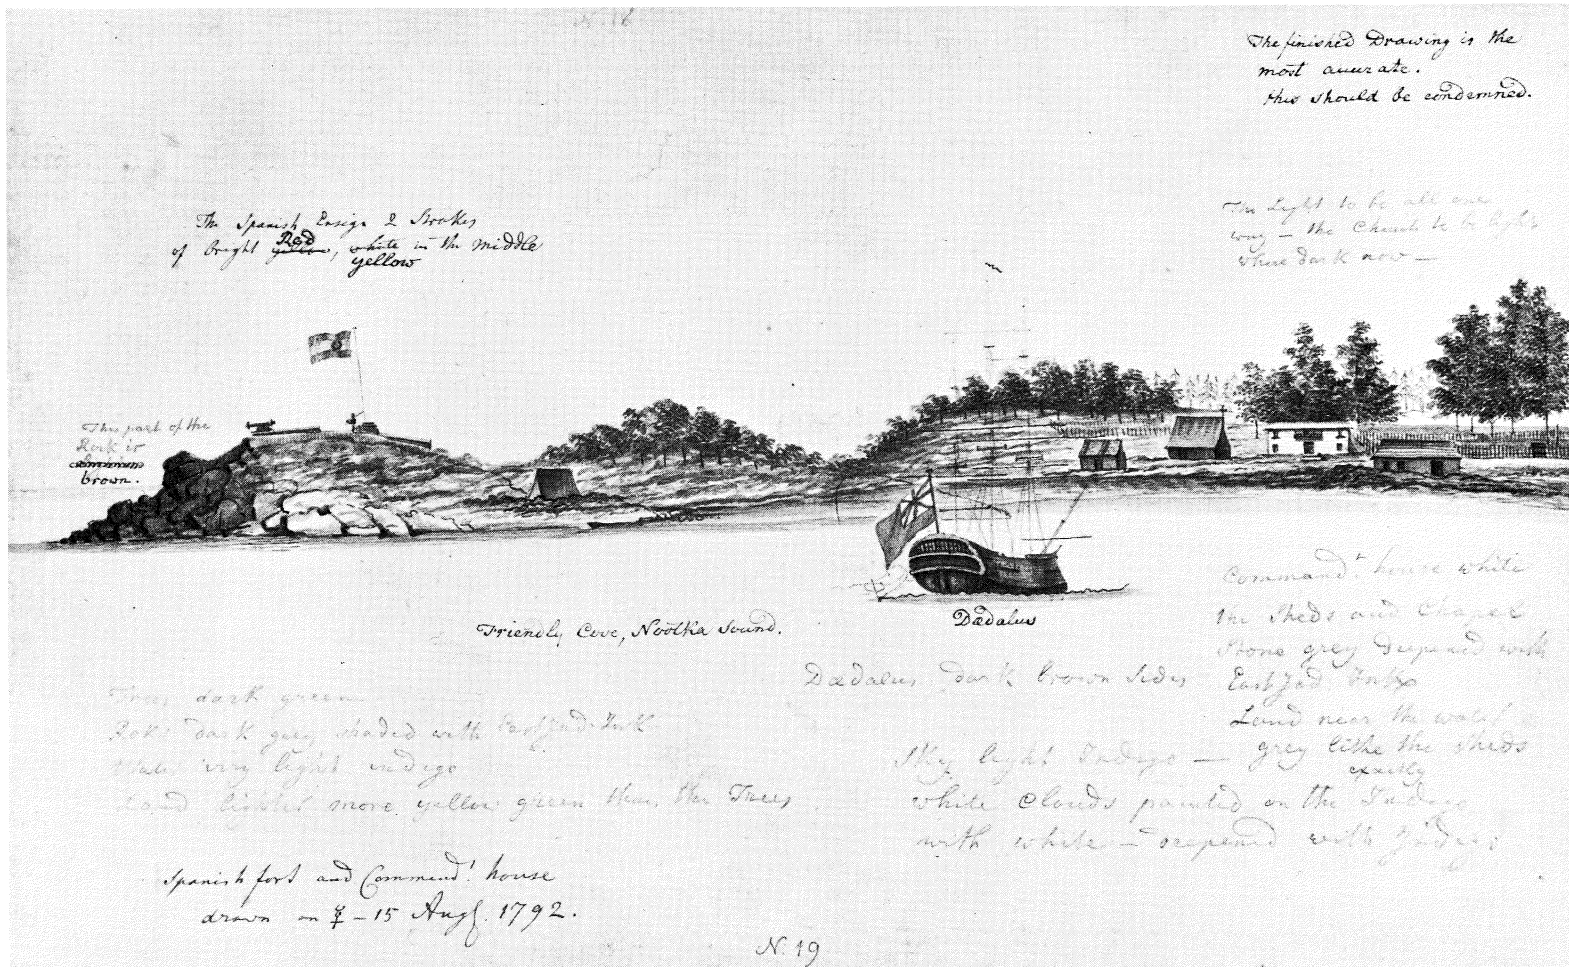 N. 18
The finished Drawing is the
most accurate.
this should be condemned.
The Spanish Ensign 2 Strokes
of bright yellow, white in the middle
Red
yellow
The Light to be all one
way – the Church to be light
where dark now —
This part of the
Rock is
brown.
Friendly Cove, Nootka Sound.
Dædalus
Dædalus dark brown sides
Command.t house white
the Sheds and Chapel
Stone grey deepened with
Land near the water
grey like the sheds
exactly
Trees dark green
Roks dark grey shaded with
Water very light indigo
Land lighter more yellow green than the Trees
Sky light Indigo —
white Clouds painted on the Indigo
with white — deepened with Indigo
Spanish fort and Command.t house
drawn on ☿ – 15 Aug. 1792.
N. 19